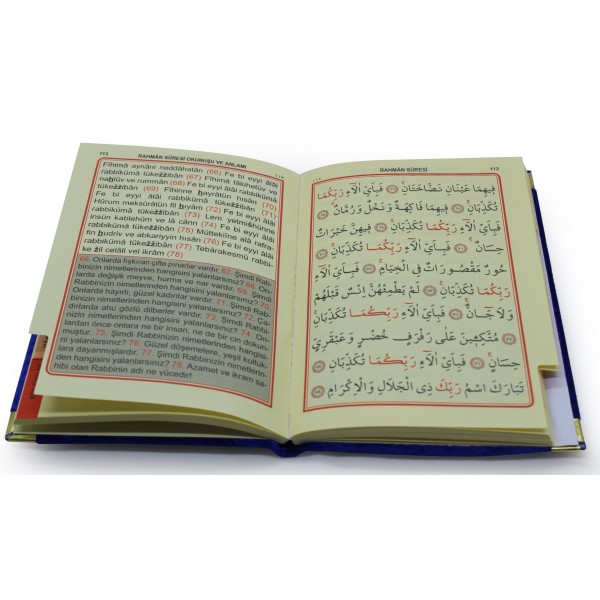 113
RAHMÂN SÛRESİ OKUNUŞU VE ANLAMI
Fîhimâ aynâni neddâhatân (66) Fe bi eyyi âlâi
rabbikümâ tükežžibân (67) Fîhimâ fâkihetüv ve
nahlüv ve rummân (68) Fe bi eyyi âlâi rabbikümâ
tükežžibân (69) Fîhinne hayrâtün hısân (70)
Fe bi eyyi âlâi rabbikümâ tükežžibân (71)
Hûrum meksûrâtün fil hıyâm (72) Fe bi eyyi âlâi
rabbikümâ tükežžibân (73) Lem yetmishünne
insün kablehüm ve lâ cânn (74) Fe bi eyyi âlâi
rabbikümâ tükežžibân (75) Müttekiîne alâ rafra-
fin hudriv ve abkariyyin hısân (76) Fe bi eyyi âlâi
rabbikümâ tükežžibân (77) Tebârakesmü rabbi-
ke žil celâli vel ikrâm (78)
66. Onlarda fışkıran çifte pınarlar vardır. 67. Şimdi Rab-
binizin nimetlerinden hangisini yalanlarsınız? 68. On-
larda değişik meyve, hurma ve nar vardır. 69. Şimdi
Rabbinizin nimetlerinden hangisini yalanlarsınız? 70.
Onlarda hayırlı, güzel kadıntar vardır. 71. Şimdi Rab-
binizin nimetlerinden hangisini yalanlarsınız? 72. Ça-
dırlarda ahu gözlü dilberler vardır. 73. Şimdi Rabbi-
nizin nimetlerinden hangisini yalanlarsınız? 74. On-
lardan önce onlara ne bir insan, ne de bir cin dokun-
muştur. 75. Şimdi Rabbinizin nimetlerinden hangisi-
ni yalanlarsınız? 76. Güzel döşemelere, yeşil koltuk-
lara dayanmışlardır. 77. Şimdi Rabbinizin nimetlerin-
den hangisini yalanlarsınız? 78. Azamet ve ikram sa-
hibi olan Rabbinin adı ne yücedir!
RAHMÂN SÛRESİ
112
فِيهِمَا عَيْنَانِ نَضَّاخَتَانِۚ ﴿٦٦﴾ فَبِاَيِّ اٰلَٓاءِ رَبِّكُمَا
تُكَذِّبَانِۚ ﴿٦٧﴾ فِيهِمَا فَاكِهَةٌ وَنَخْلٌ وَرُمَّانٌۚ ﴿٦٨﴾
فَبِاَيِّ اٰلَٓاءِ رَبِّكُمَا تُكَذِّبَانِۚ ﴿٦٩﴾ فِيهِنَّ خَيْرَاتٌ
حِسَانٌۚ ﴿٧٠﴾ فَبِاَيِّ اٰلَٓاءِ رَبِّكُمَا تُكَذِّبَانِۚ ﴿٧١﴾
حُورٌ مَقْصُورَاتٌ فِي الْخِيَامِۚ ﴿٧٢﴾ فَبِاَيِّ اٰلَٓاءِ
رَبِّكُمَا تُكَذِّبَانِۚ ﴿٧٣﴾ لَمْ يَطْمِثْهُنَّ اِنْسٌ قَبْلَهُمْ
وَلَا جَٓانٌّۚ ﴿٧٤﴾ فَبِاَيِّ اٰلَٓاءِ رَبِّكُمَا تُكَذِّبَانِۚ ﴿٧٥﴾
مُتَّكِـِٔينَ عَلٰى رَفْرَفٍ خُضْرٍ وَعَبْقَرِيٍّ
حِسَانٍۚ ﴿٧٦﴾ فَبِاَيِّ اٰلَٓاءِ رَبِّكُمَا تُكَذِّبَانِ ﴿٧٧﴾
تَبَارَكَ اسْمُ رَبِّكَ ذِي الْجَلَالِ وَالْاِكْرَامِ ﴿٧٨﴾